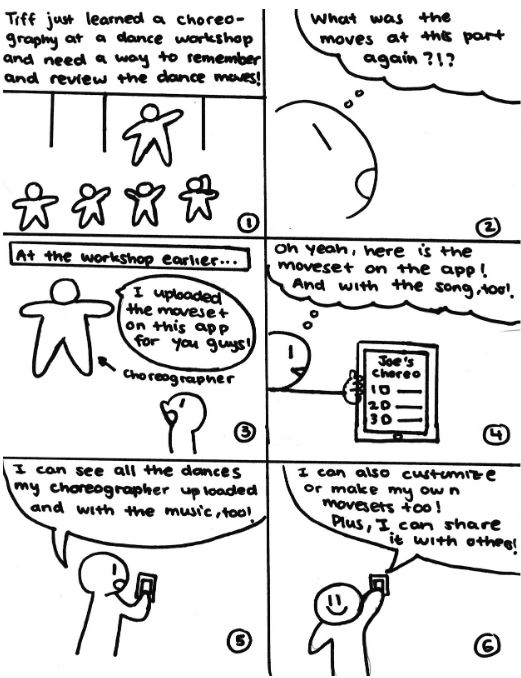 Tiff just learned a choreo-
graphy at a dance workshop
and need a way to remember
and review the dance moves!
1
What was the
moves at this part
again?!?
2
At the workshop earlier...
I uploaded
the moveset
on this app
for you guys!
choreographer
3
Oh yeah, here is the
moveset on the app!
And with the song, too!
Joe's
choreo
1
2
3
4
I can see all the dances
my choreographer uploaded
and with the music, too!
5
I can also custumize
or make my own
movesets too!
Plus, I can share
it with others!
6